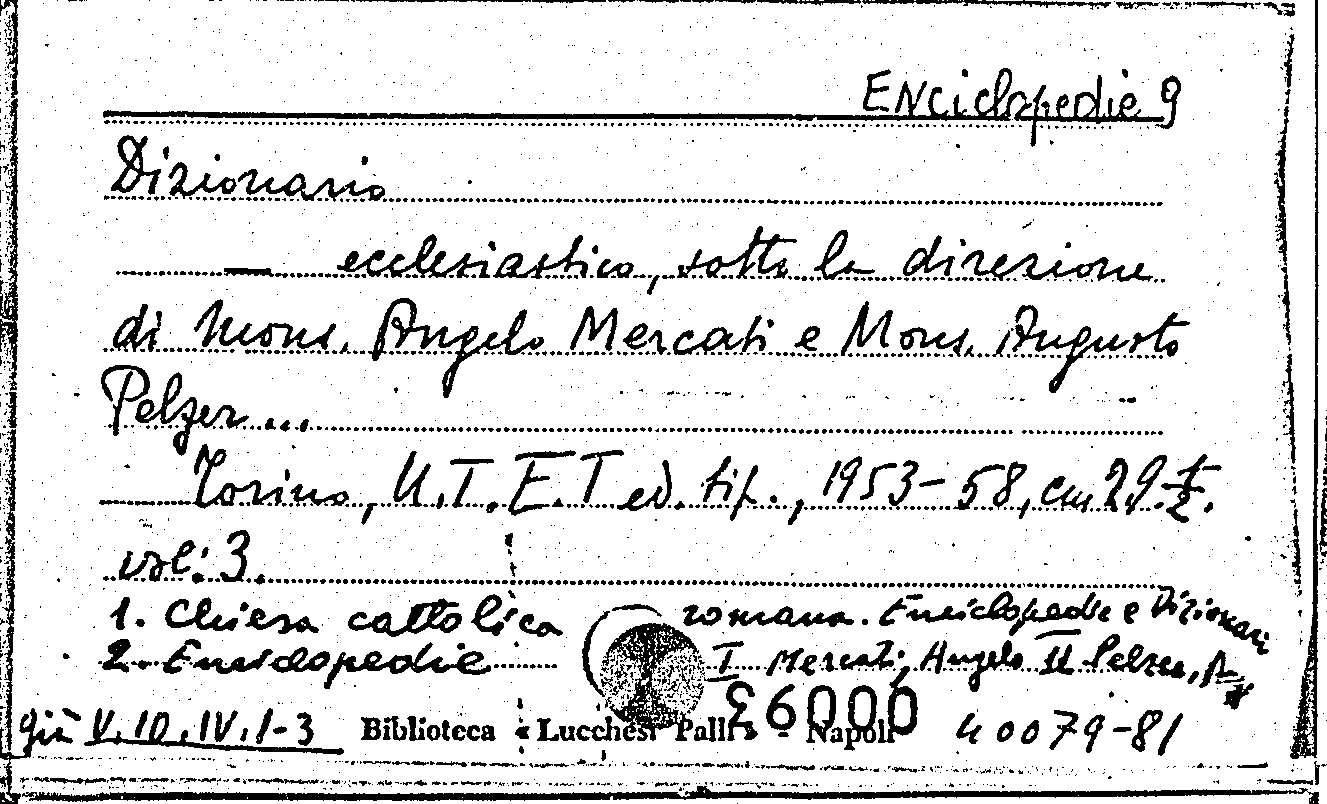 Enciclopedie 9
Dizionario
— ecclesiastico, sotto la direzione
di Mons. Angelo Mercati e Mons. Augusto
Pelzer...
Torino, U.T.E.T ed. tip., 1953-58, cm 29 ½.
vol: 3.
1. Chiesa cattolica romana. Enciclopedie e Dizionari
2. Enciclopedie I Mercati, Angelo II Pelzer, A
£6000
già V.10.IV.1-3 Biblioteca « Lucchesi Palli » - Napoli 40079-81